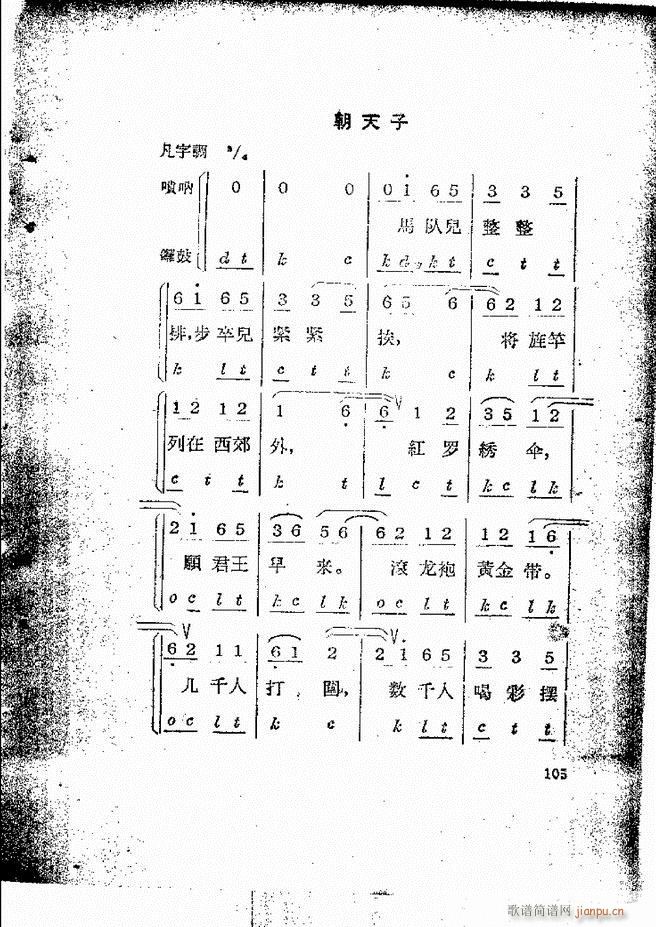 朝天子
凡字調 2/4
嗩吶 0 0 0 0 1 6 5 3 3 5
馬队兒 整 整
鑼鼓 d t k c k d, k t c t t
6 1 6 5 3 3 5 6 5 6 6 2 1 2
排,步卒兒 紧 紧 挨, 将旌竿
k l t c t t k c k l t
1 2 1 2 1 6 6 1 2 3 5 1 2
列在西郊 外, 紅罗 綉 伞,
c t t k t l c t k c l k
2 1 6 5 3 6 5 6 6 2 1 2 1 2 1 6
願君王 早 来。 滾龙袍 黄金带。
o c l t k c l k o c l t k c l k
6 2 1 1 6 1 2 2 1 6 5 3 3 5
几千人 打 圍, 数千人 喝彩摆
o c l t k c k l t c t t
105
歌谱简谱网 jianpu.cn